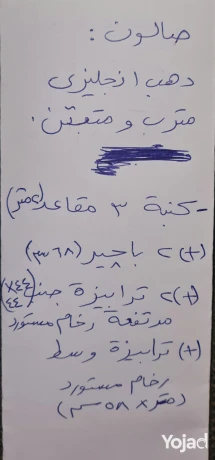 صالون:
دهب انجليزى
مترب و متعتق.
- كنبة ٣ مقاعد (٢متر)
(+) ٢ باجير (٦٨سم)
(+) ٢ ترابيزة جنب (٤٤×٤٤)
مرتفعة رخام مستورد
(+) ترابيزة وسط
رخام مستورد
(متر × ٥٨ سم)
Yojad